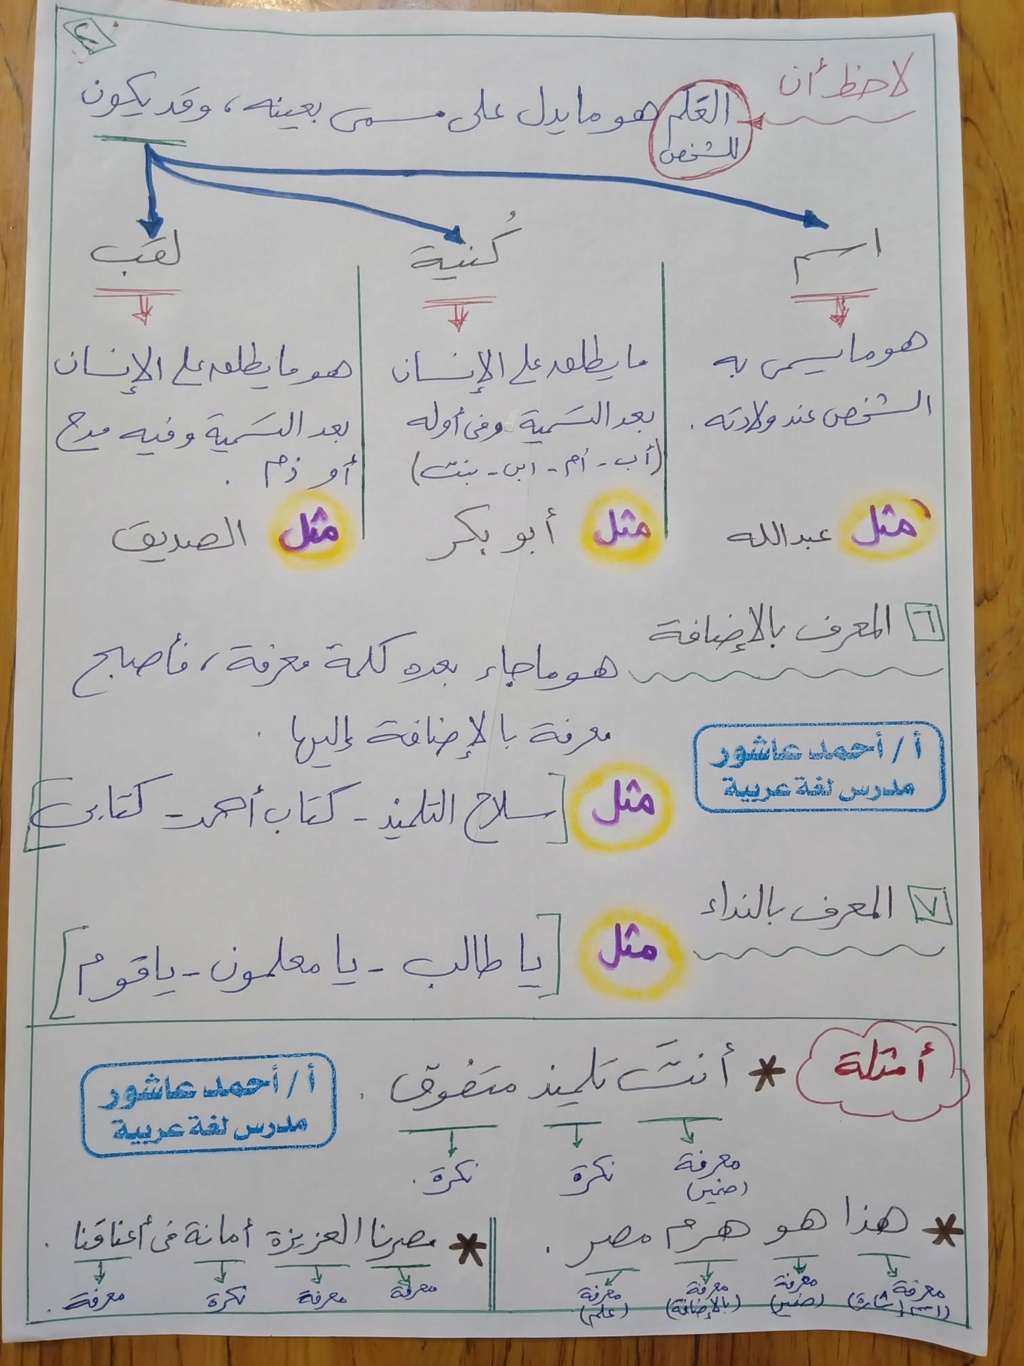 ٢
لاحظ أن
العَلم هو ما يدل على مسمى بعينه، وقد يكون
للشخص
اسم
كُنية
لقب
هو ما يسمى به
الشخص عند ولادته.
مثل عبدالله
ما يطلق على الإنسان
بعد التسمية وفى أوله
(أب - أم - ابن - بنت)
مثل أبو بكر
هو ما يطلق على الإنسان
بعد التسمية وفيه مدح
أو ذم.
مثل الصديق
٦ المعرف بالإضافة
هو ما جاء بعده كلمة معرفة، فأصبح
معرفة بالإضافة إليها.
أ/أحمد عاشور
مدرس لغة عربية
مثل [سلاح التلميذ - كتاب أحمد - كتابى]
٧ المعرف بالنداء
مثل [يا طالب - يا معلمون - يا قوم]
أمثلة
* أنتَ تلميذ متفوق.
معرفة نكرة نكرة.
(ضمير)
أ/أحمد عاشور
مدرس لغة عربية
* هذا هو هرم مصر.
معرفة معرفة معرفة معرفة
(اسم إشارة) (ضمير) (بالإضافة) (علم)
* مصرنا العزيزة أمانة فى أعناقنا.
معرفة معرفة نكرة معرفة.